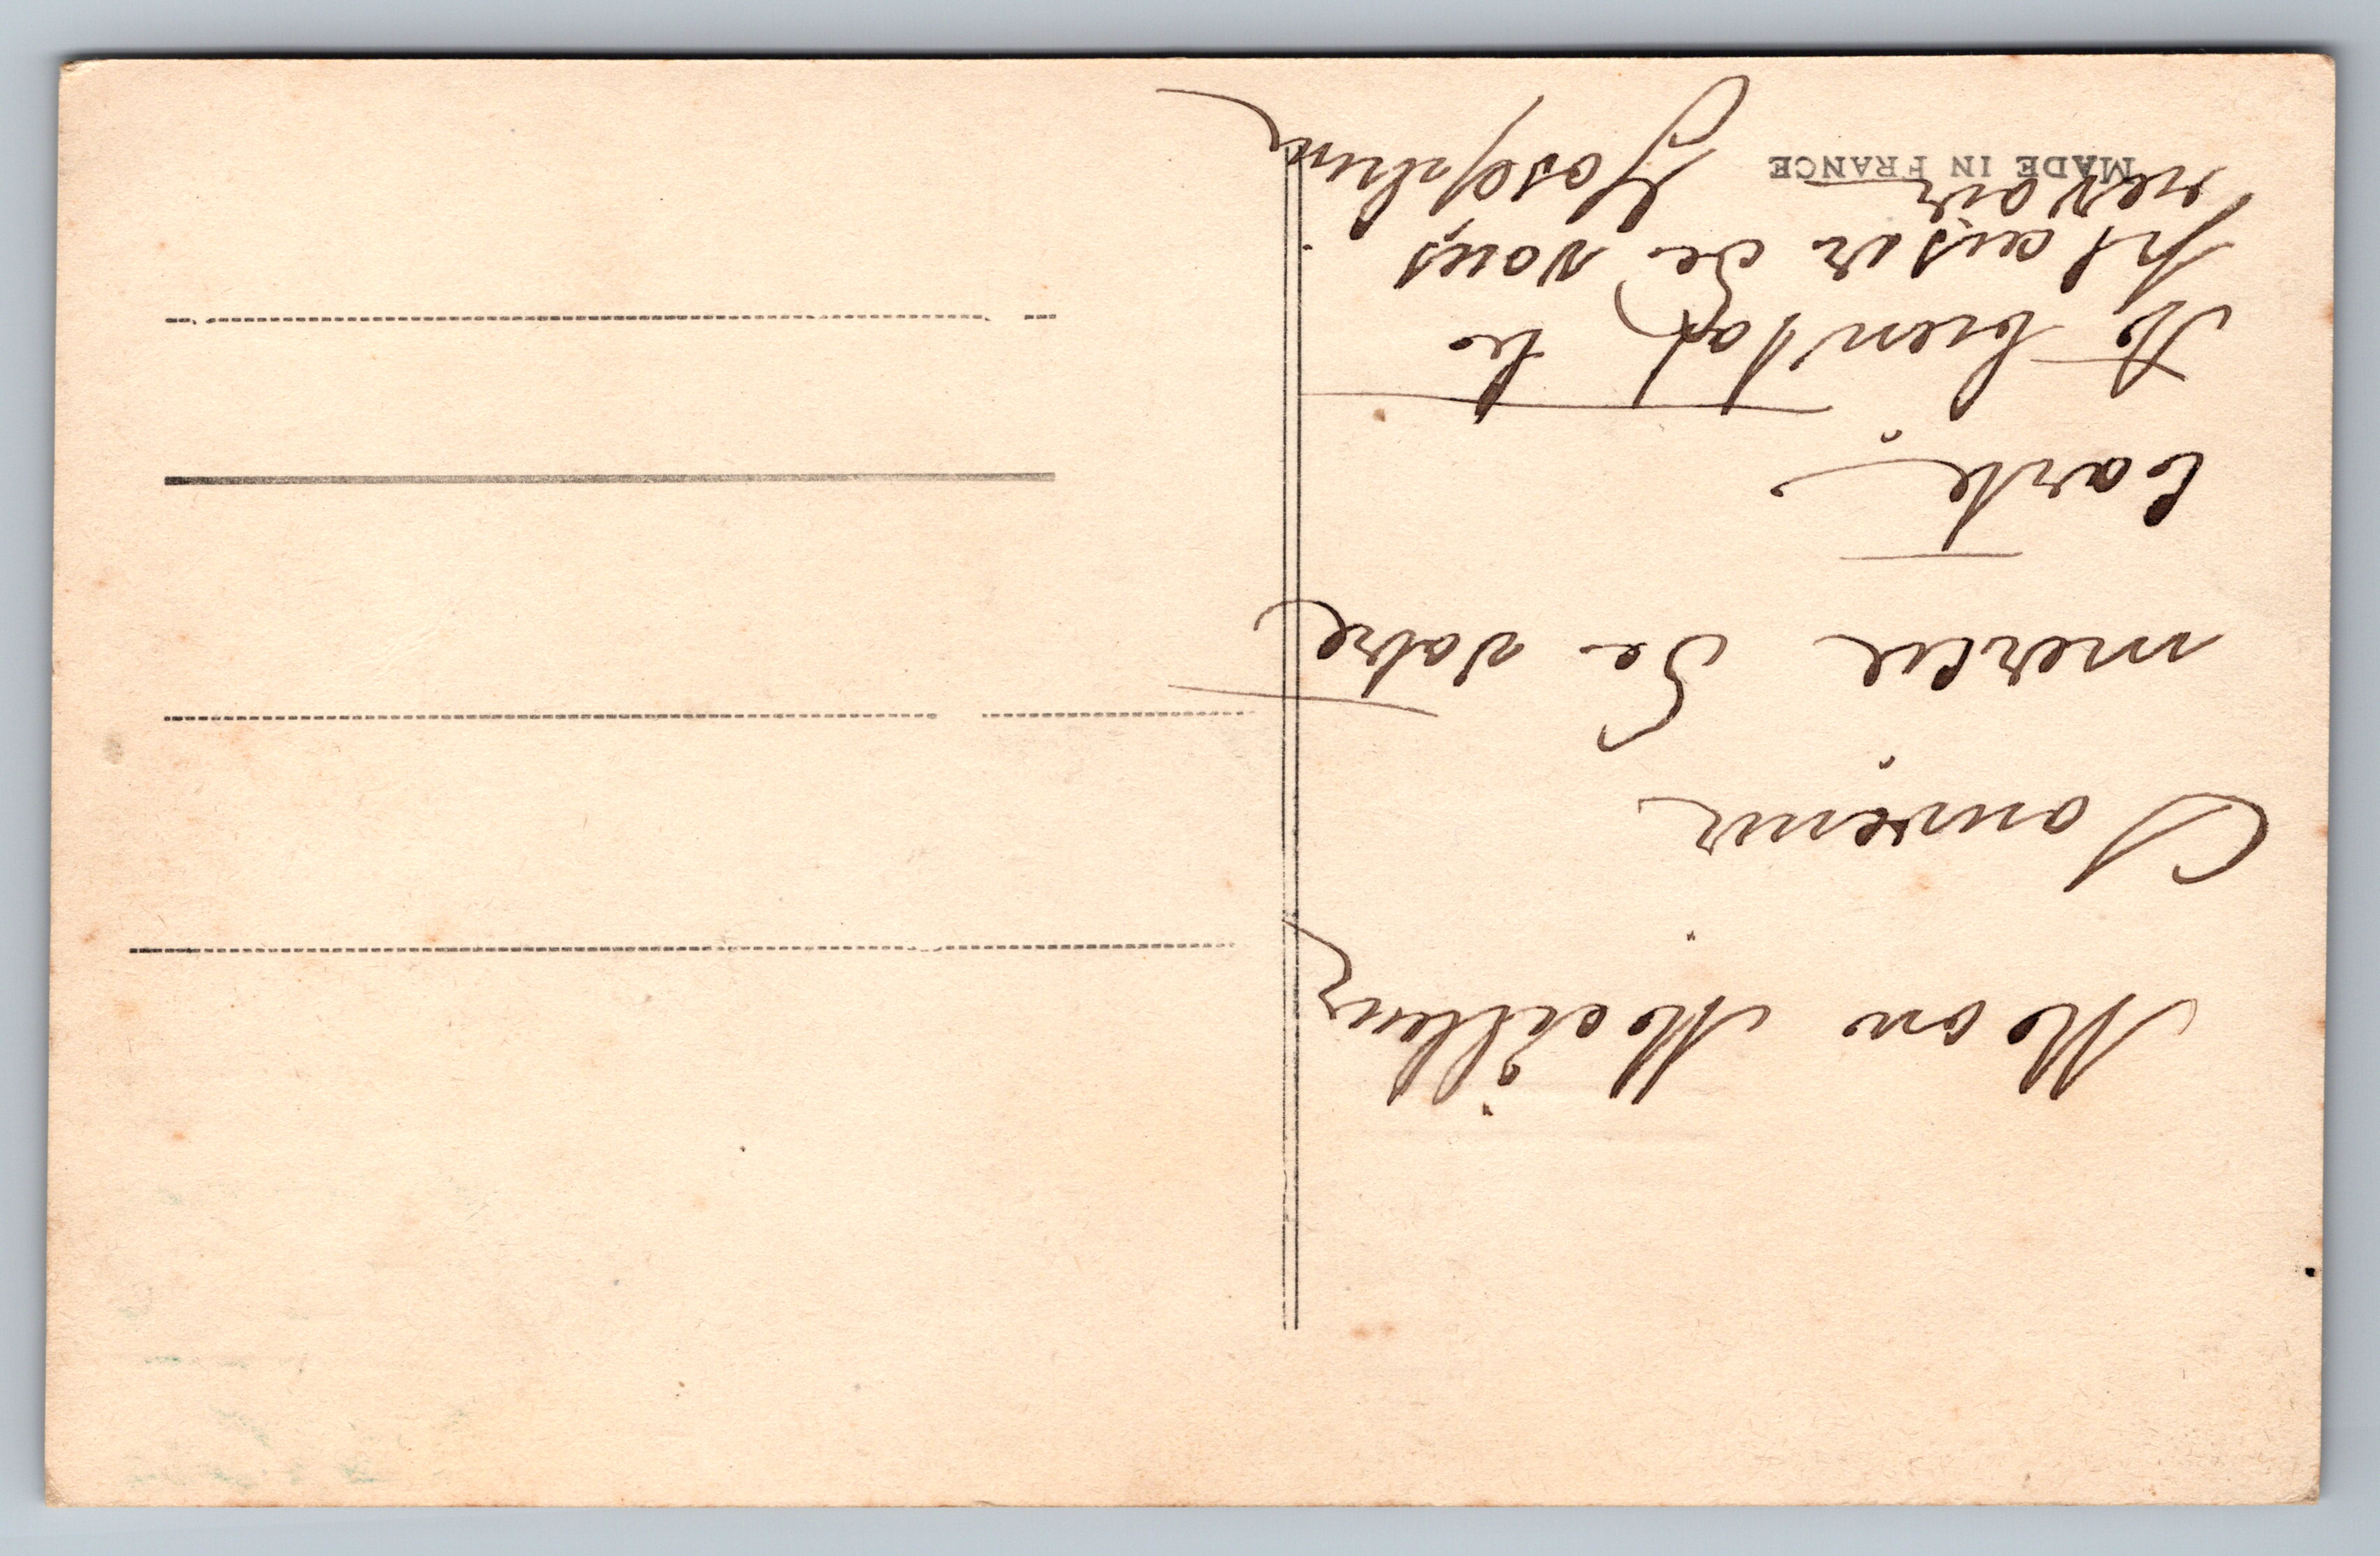 Mon Meilleur
Souvenir
mercie de votre
carte
A bientot le
plaisir de vous
revoir Joséphine
MADE IN FRANCE